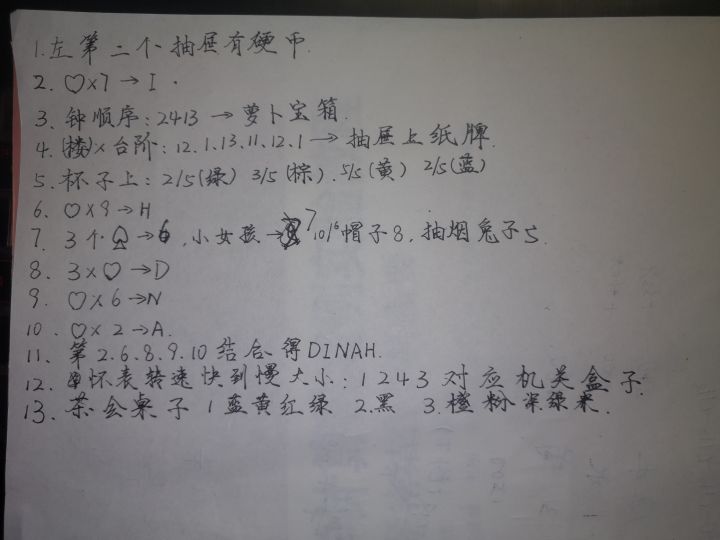 1.左第二个抽屉有硬币.
2. ♡×7→I.
3. 钟顺序:2413→萝卜宝箱.
4. (楼)×台阶:12.1.13.11.12.1→抽屉上纸牌.
5. 杯子上:2/5(绿) 3/5(棕).5/5(黄) 2/5(蓝)
6. ♡×9→H
7. 3个♤→6,小女孩→7 10/6帽子8,抽烟兔子5.
8. 3×♡→D
9. ♡×6→N
10. ♡×2→A.
11. 第2.6.8.9.10结合得DINAH.
12. 怀表转速快到慢大小:1243对应机关盒子.
13. 茶会桌子 1蓝黄红绿 2.黑 3.橙粉深绿米.